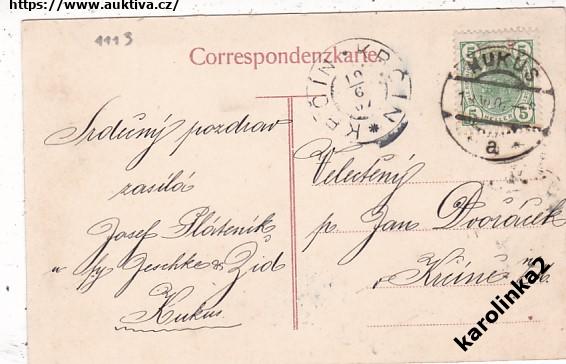 https://www.auktiva.cz/
1113
Correspondenzkarte.
KRČÍN * KRČÍN
10
6
07
5 5
KUKUS
5 HELLER 5
a *
Srdečný pozdrav
zasílá
Josef Pláteník
u fy Jeschke & Žid
Kukus.
Velectěný
p. Jan Dvořáček
v Krčíně
karolinka2